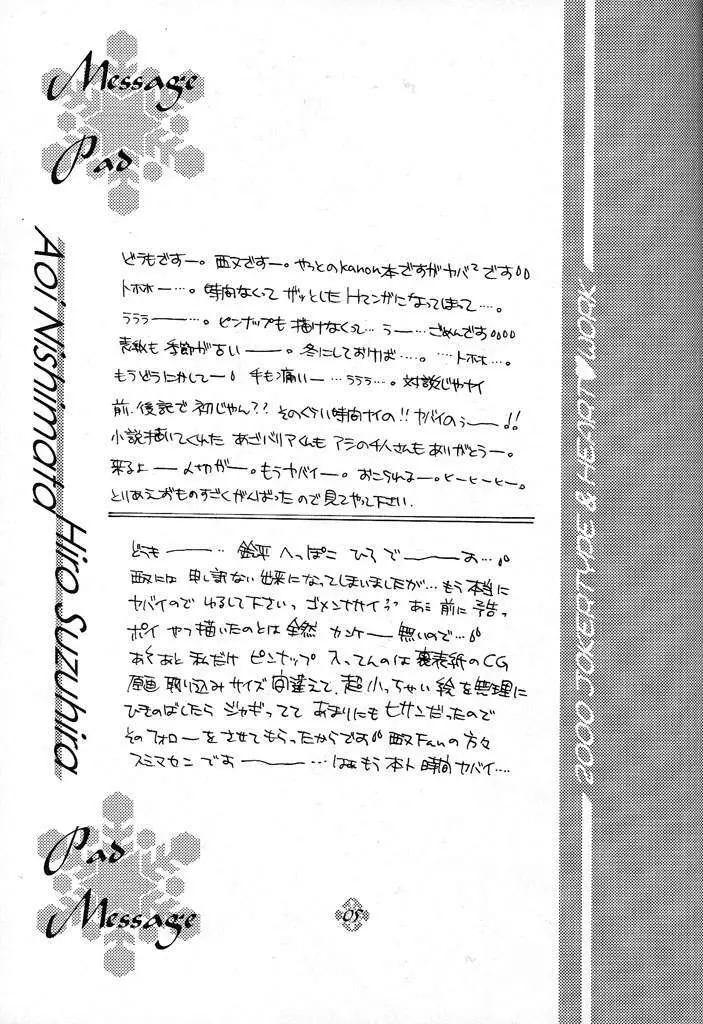 Message
Pad
Aoi Nishimata
どうもですー。西又ですー。やっとのkanon本ですがヤバ²です
トホホー…。時間なくって ザッとしたHマンガになってしまって…。
ラララー――…。ピンナップも描けなくって… うー… ごめんです
表紙も季節が古い―――。冬にしておけば…。…トホホ…。
もうどうにかしてー 手も痛いー …ラララ…。対談じゃナイ
前.後記で初じゃん?? そのくらい時間ナイの!! ヤバイのぅ――!!
小説描いてくれた あざバリアくんも アシの4人さんも ありがとうー。
来るよ ――人切がー。もうヤバイー。おこられるー。ヒーヒーヒー。
とりあえおものすごくがんばったので見てやって下さい.
Hiro Suzuhira
どうも―――‥ 鈴平 へっぽこ ひろ で―――お…
西又には 申し訳ない出来になってしまいましたが…もう本当に
ヤバイので ゆるして下さいっ ゴメンナサイ あミ 前に予告っ
ポイ やつ描いたのとは 全然 カンケー 無いので…
あくあと 私だけ ピンナップ 入ってんのは 裏表紙のCG
原画 取り込みサイズ 間違えて、超 小っちゃい絵を無理に
ひきのばしたら ジャギってて あまりにも ヒサンだったので
そのフォローをさせてもらったからです 西又Fanの方々
スミマセン でお――― …はぁもう 本ト 時間ヤバイ….
Pad
Message
05
2000 JOKERTYPE & HEART♥WORK